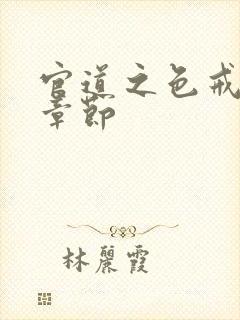 官道之色戒
章節
林麗霞